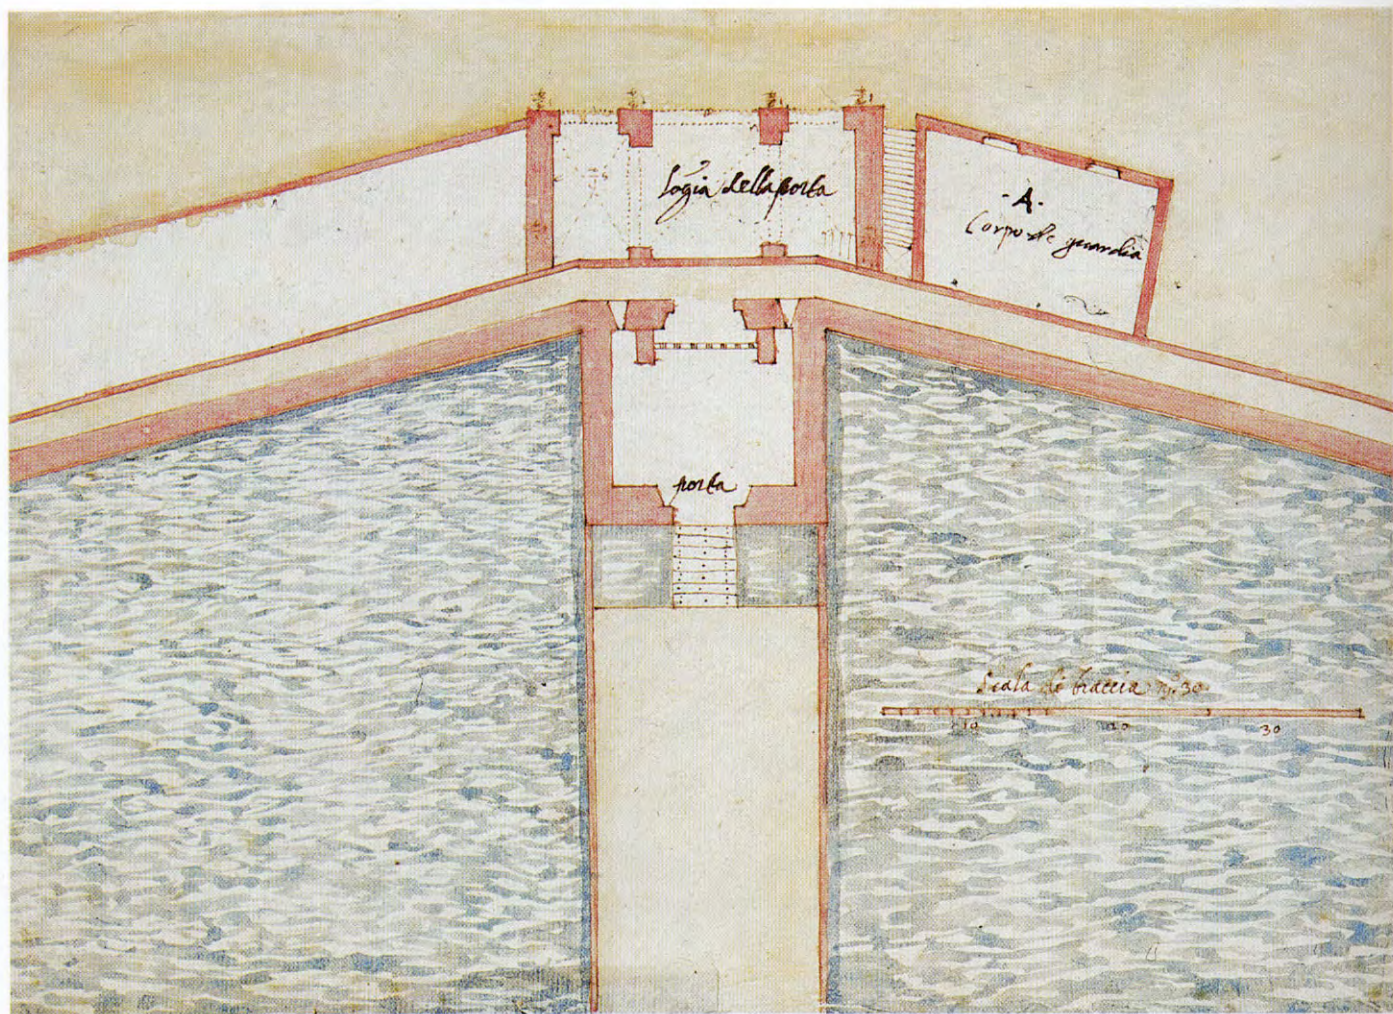 logia della porta
·A·
Corpo de guardia
porta
Scala di braccia nº 30
10
20
30